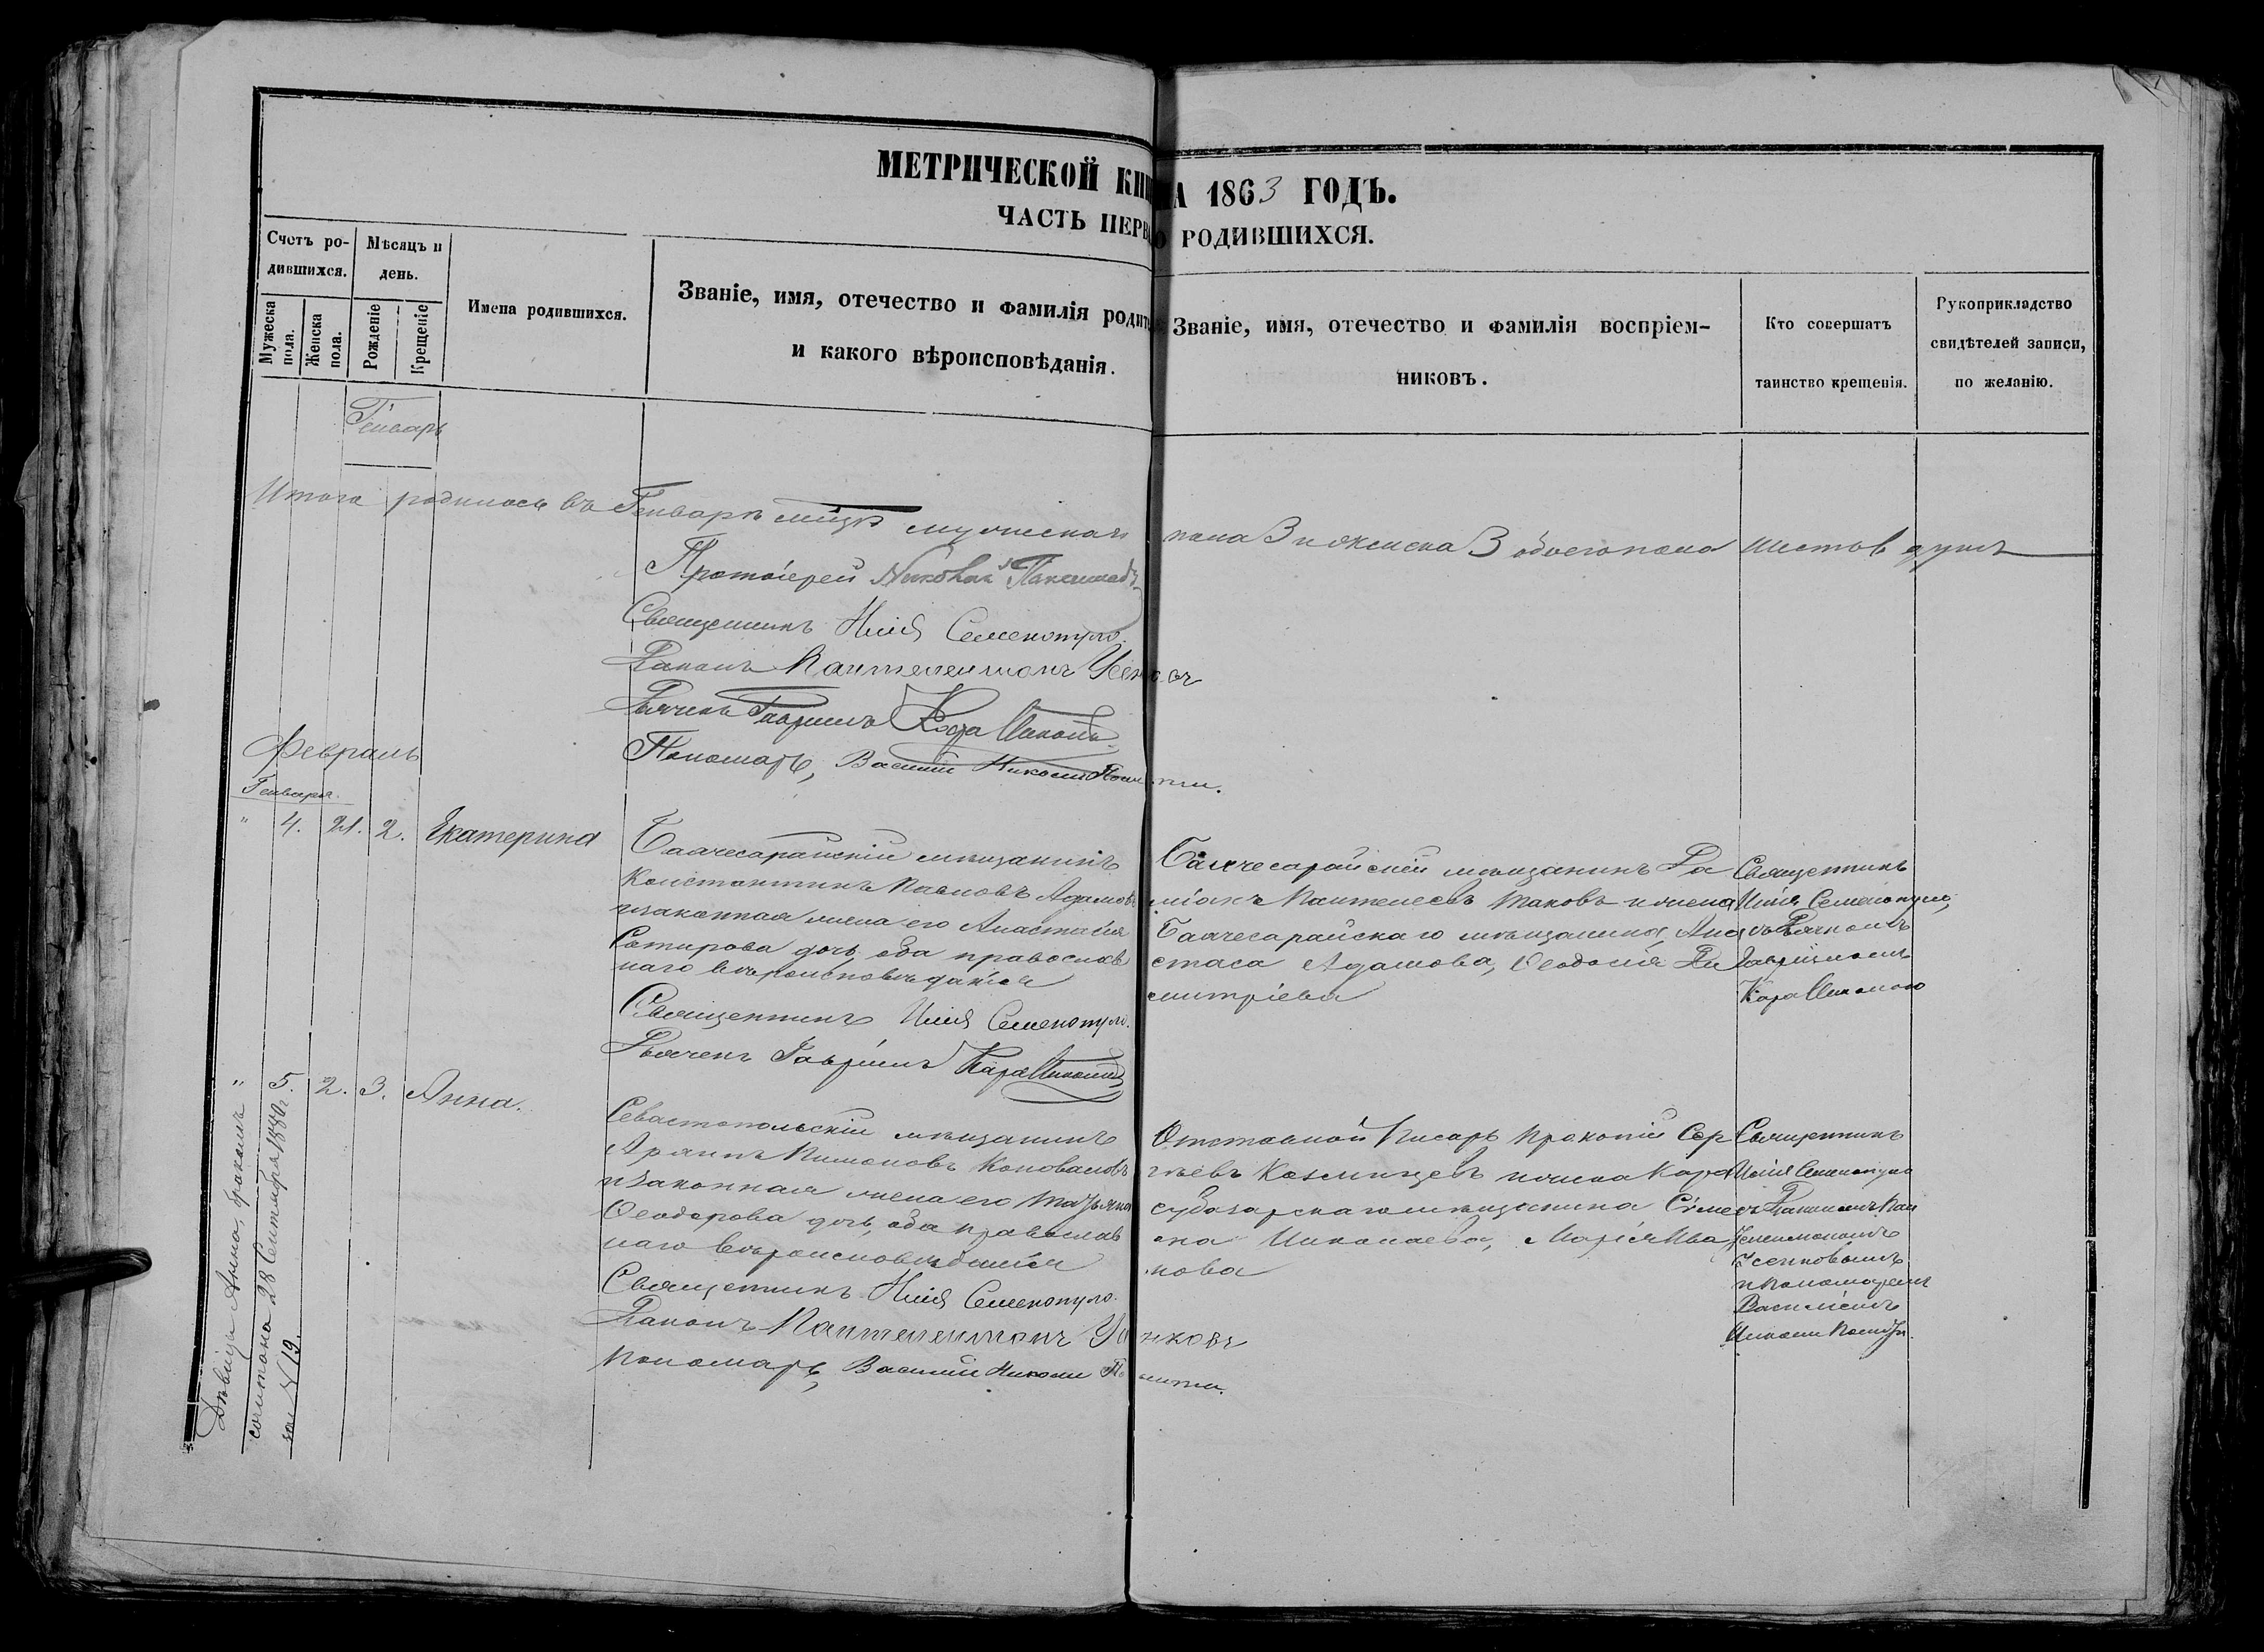 МЕТРИЧЕСКОЙ КНИ
НА 1863 ГОДЪ.
ЧАСТЬ ПЕРВ
О РОДИВШИХСЯ.
Счетъ ро-
дившихся.
Мужеска
пола.
Женска
пола.
Мѣсяцъ и
день.
Рожденіе
Крещеніе
Имена родившихся.
Званіе, имя, отечество и фамилія родит
и какого вѣроисповѣданія.
Званіе, имя, отечество и фамилія воспріем-
никовъ.
Кто совершатъ
таинство крещенія.
Рукоприкладство
свидѣтелей записи,
по желанію.
Генварь
Итого родилось въ Генварѣ мцѣ мужеска пола 3 и женска 3 обоего пола шесть душъ
Протоіерей
Священникъ Илія Семенопуло.
Діаконъ Пантелеимонъ
Дьячекъ Гавріилъ Кара Николи
Пономарь, Василій Николи
Февраль
Генваря.
" 4. 21. 2. Екатерина
Бахчесарайскій мѣщанинъ
Константинъ Павловъ Адамовъ
и законная жена его Анастасія
Сотирова дочь, оба православ
наго вѣроисповѣданія
Священникъ Илія Семенопуло.
Дьячекъ Гавріилъ Кара Николи
Бахчесарайскій мѣщанинъ Да
міанъ Пантелеевъ и жена
Бахчесарайскаго мѣщанина, Ана
стаса Адамова, Ѳеодосія Ди
митріева
Священникъ
Илія Семенопуло,
съ Дьячкомъ
Гавріиломъ
Кара Николою
" 5. 2. 3. Анна.
Севастопольскій мѣщанинъ
Пимоновъ Коноваловъ
и законная жена его Татьяна
Ѳеодорова дочь, оба православ
наго вѣроисповѣданія
Священникъ Илія Семенопуло.
Діаконъ Пантелеимонъ
Пономарь, Василій Николи
Отставной Писарь Прокопій Сер
гѣевъ и жена Кара
субазарскаго мѣщанина Симео
на Николаева, Марія Ива
нова
Священникъ
Илія Семенопуло
съ Діакономъ Пан
телеимономъ
Усенковымъ
и пономаремъ
Василіемъ
Николи
Дѣвица Анна, бракомъ
сочитана 28 Сентября 1880 г.
за № 19.